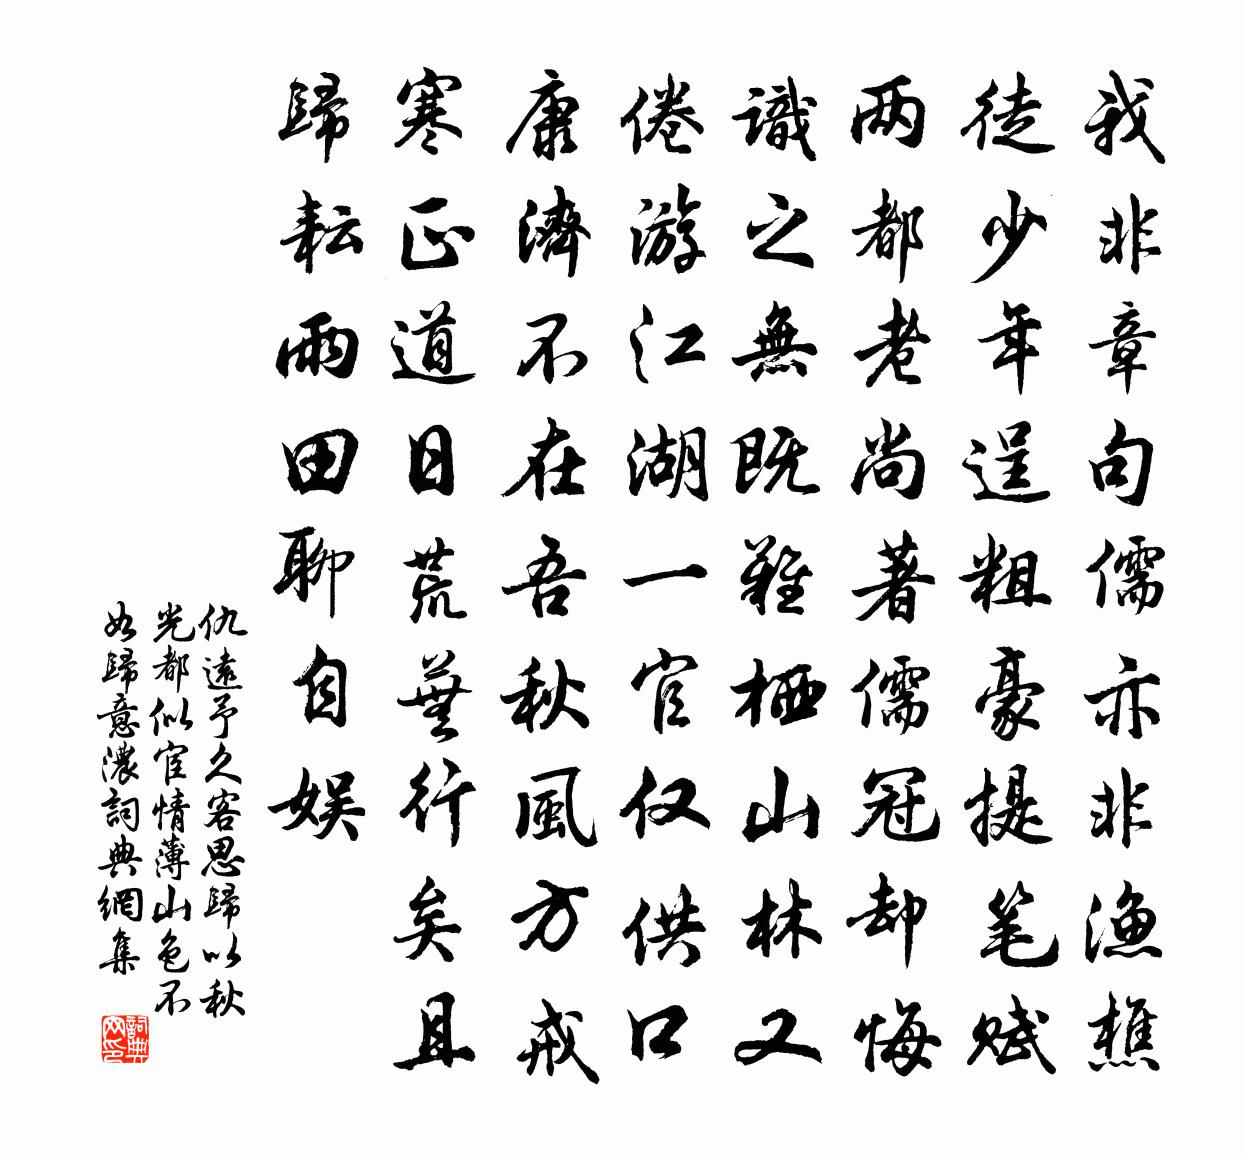 我非章句儒亦非漁樵
徒少年逞粗豪提笔赋
两都老尚著儒冠却悔
識之無既難栖山林又
倦游江湖一官仅供口
康濟不在吾秋風方戒
寒正道日荒蕪行矣且
歸耘雨田聊自娱
仇遠予久客思歸以秋
光都似宦情薄山色不
如歸意濃詞典網集
詞典
网印